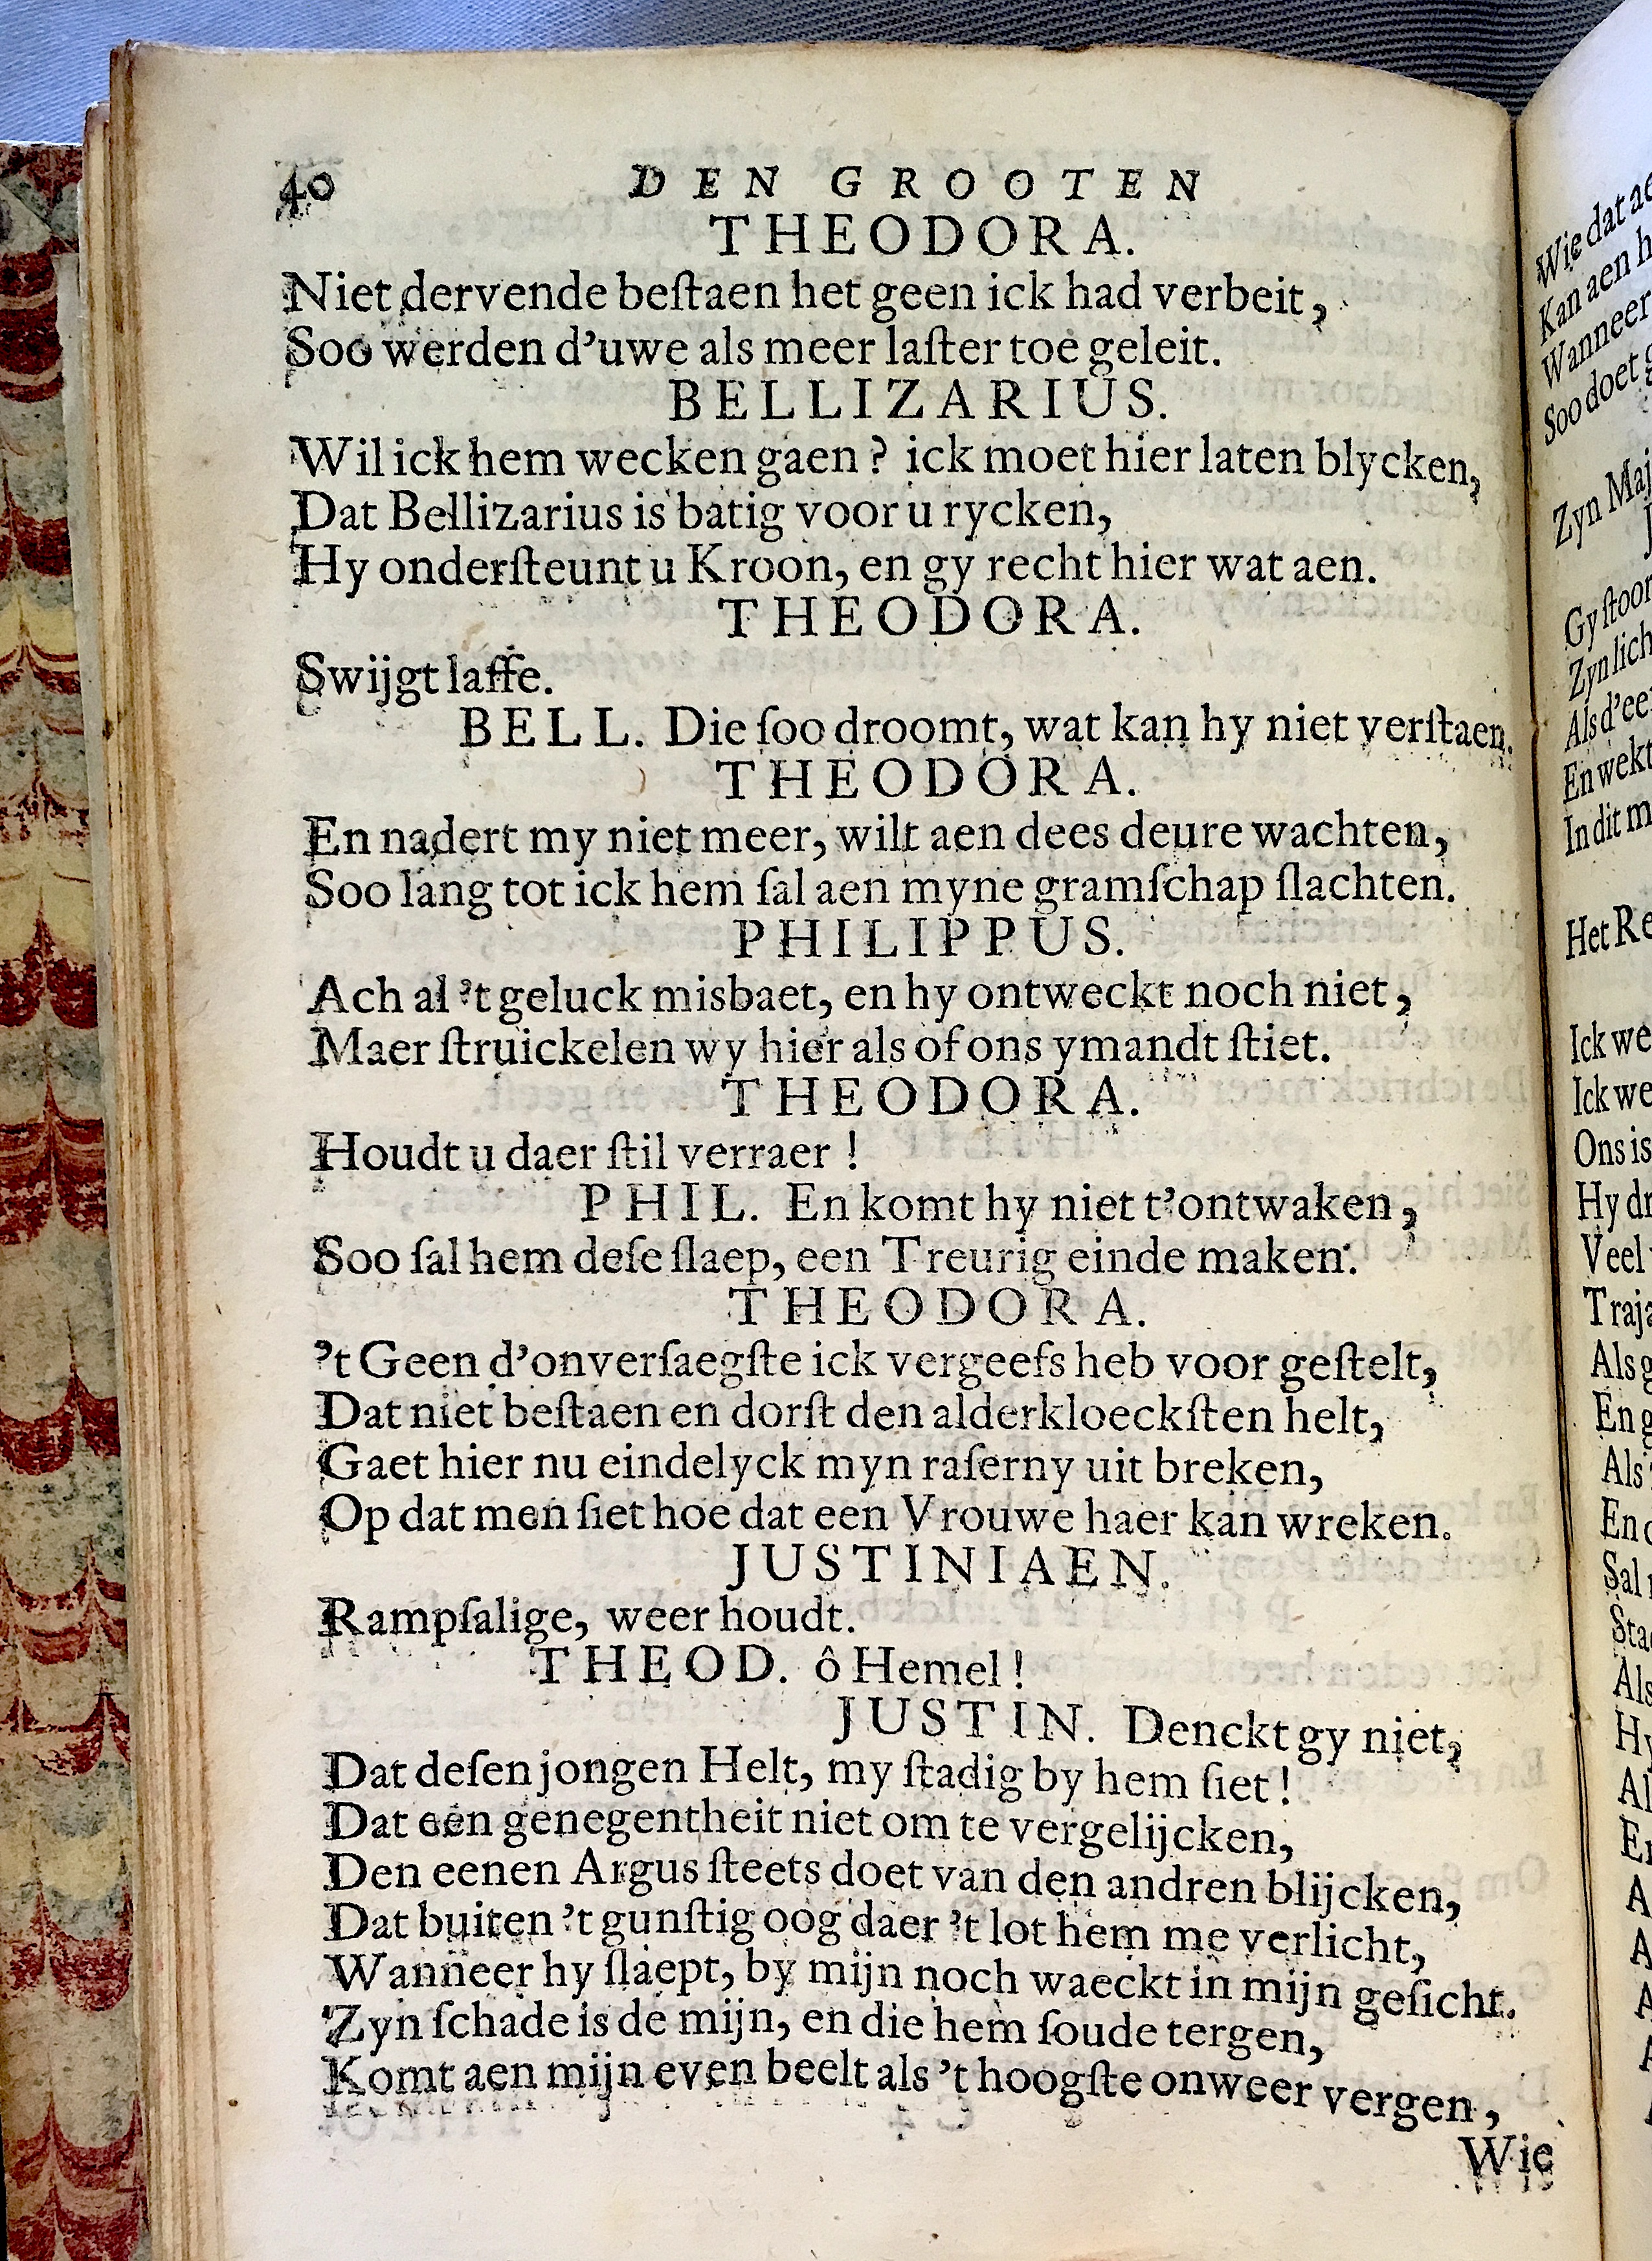 40 DEN GROOTEN
THEODORA.
Niet dervende beſtaen het geen ick had verbeit,
Soo werden d'uwe als meer laſter toe geleit.
BELLIZARIUS.
Wil ick hem wecken gaen? ick moet hier laten blycken,
Dat Bellizarius is batig voor u rycken,
Hy onderſteunt u Kroon, en gy recht hier wat aen.
THEODORA.
Swijgt laffe.
BELL. Die ſoo droomt, wat kan hy niet verſtaen.
THEODORA.
En nadert my niet meer, wilt aen dees deure wachten,
Soo lang tot ick hem ſal aen myne gramſchap ſlachten.
PHILIPPUS.
Ach al 't geluck misbaet, en hy ontweckt noch niet,
Maer ſtruickelen wy hier als of ons ymandt ſtiet.
THEODORA.
Houdt u daer ſtil verraer!
PHIL. En komt hy niet t'ontwaken,
Soo ſal hem deſe ſlaep, een Treurig einde maken.
THEODORA.
't Geen d'onverſaegſte ick vergeefs heb voor geſtelt,
Dat niet beſtaen en dorſt den alderkloeckſten helt,
Gaet hier nu eindelyck myn raſerny uit breken,
Op dat men ſiet hoe dat een Vrouwe haer kan wreken.
JUSTINIAEN.
Rampſalige, weer houdt.
THEOD. ô Hemel!
JUSTIN. Denckt gy niet,
Dat deſen jongen Helt, my ſtadig by hem ſiet!
Dat een genegentheit niet om te vergelijcken,
Den eenen Argus ſteets doet van den andren blijcken,
Dat buiten 't gunſtig oog daer 't lot hem me verlicht,
Wanneer hy ſlaept, by mijn noch waeckt in mijn geſicht.
Zyn ſchade is de mijn, en die hem ſoude tergen,
Komt aen mijn even beelt als 't hoogſte onweer vergen,
Wie
Wie dat
Kan aen
Wanneer
Soo doet
Zyn
Gy
Zyn
Als
En wekt
In dit
Het
Ick
Ick
Ons is
Hy
Veel
Als
En
Als
En
Sal
Als
Hy